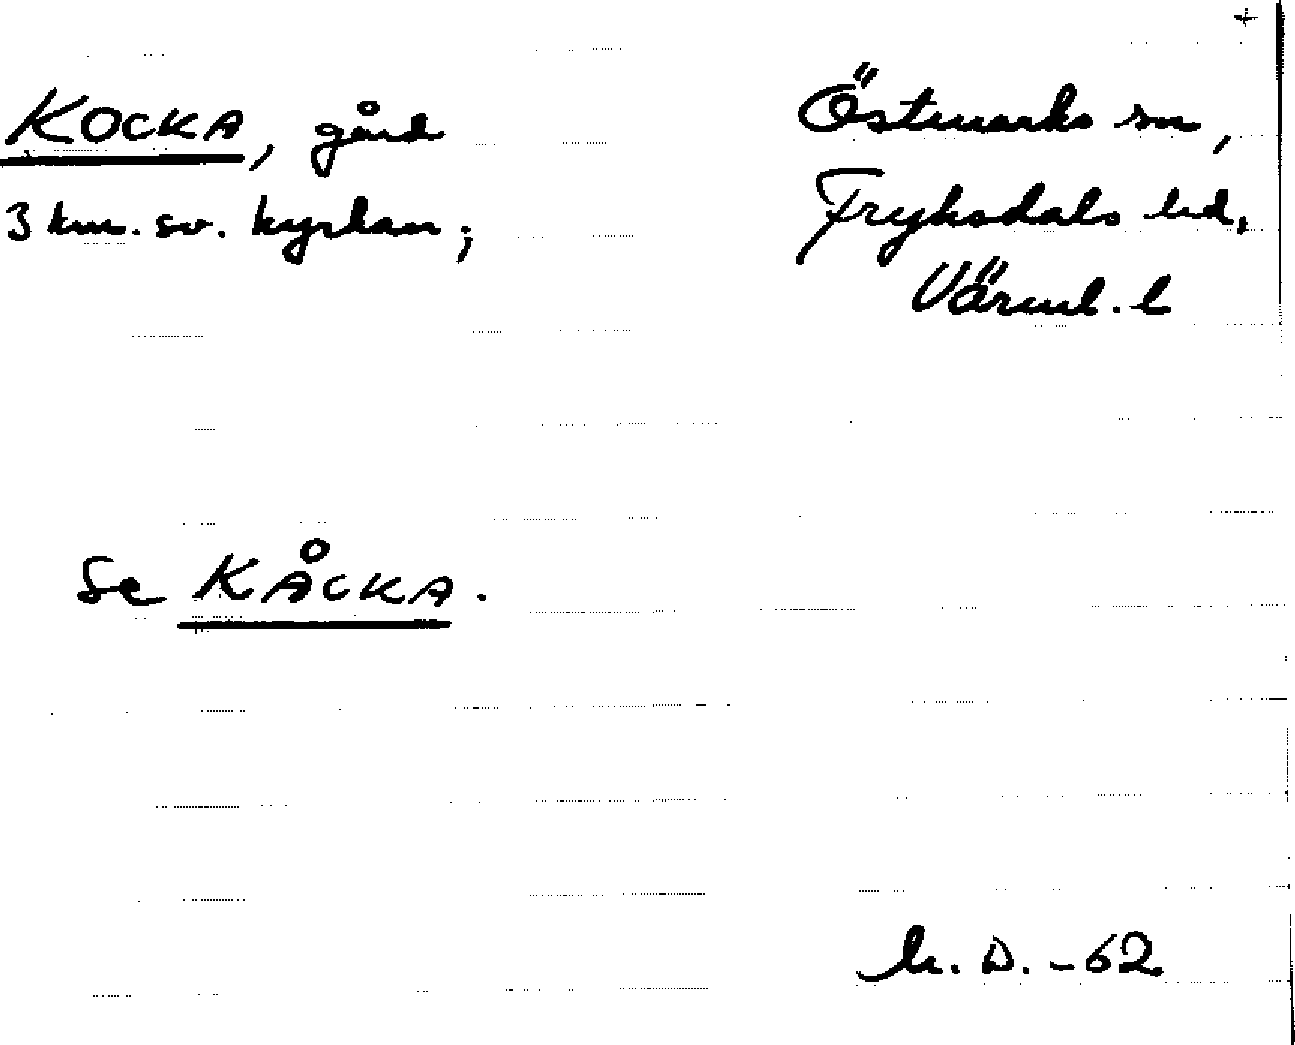 KOCKA, gård
3 km. sv. kyrkan;
Östmarks sn,
Fryksdals hd,
Värml. l
Se KÅCKA.
h. D. -62